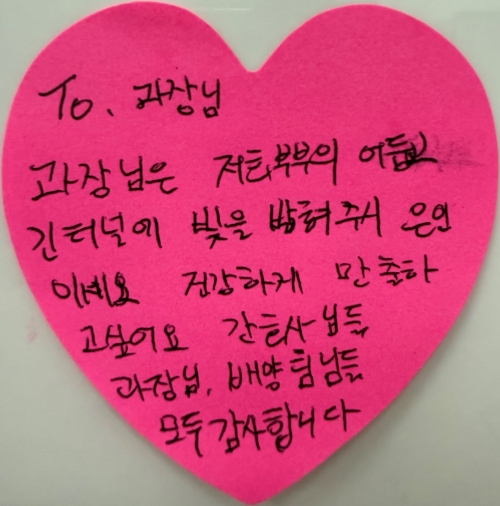 To. 과장님
과장님은 저희부부의 어둡고
긴터널에 빛을 밝혀주시 은인
이예요 건강하게 만출하
고싶어요 간호사님들
과장님, 배양팀님들
모두감사합니다